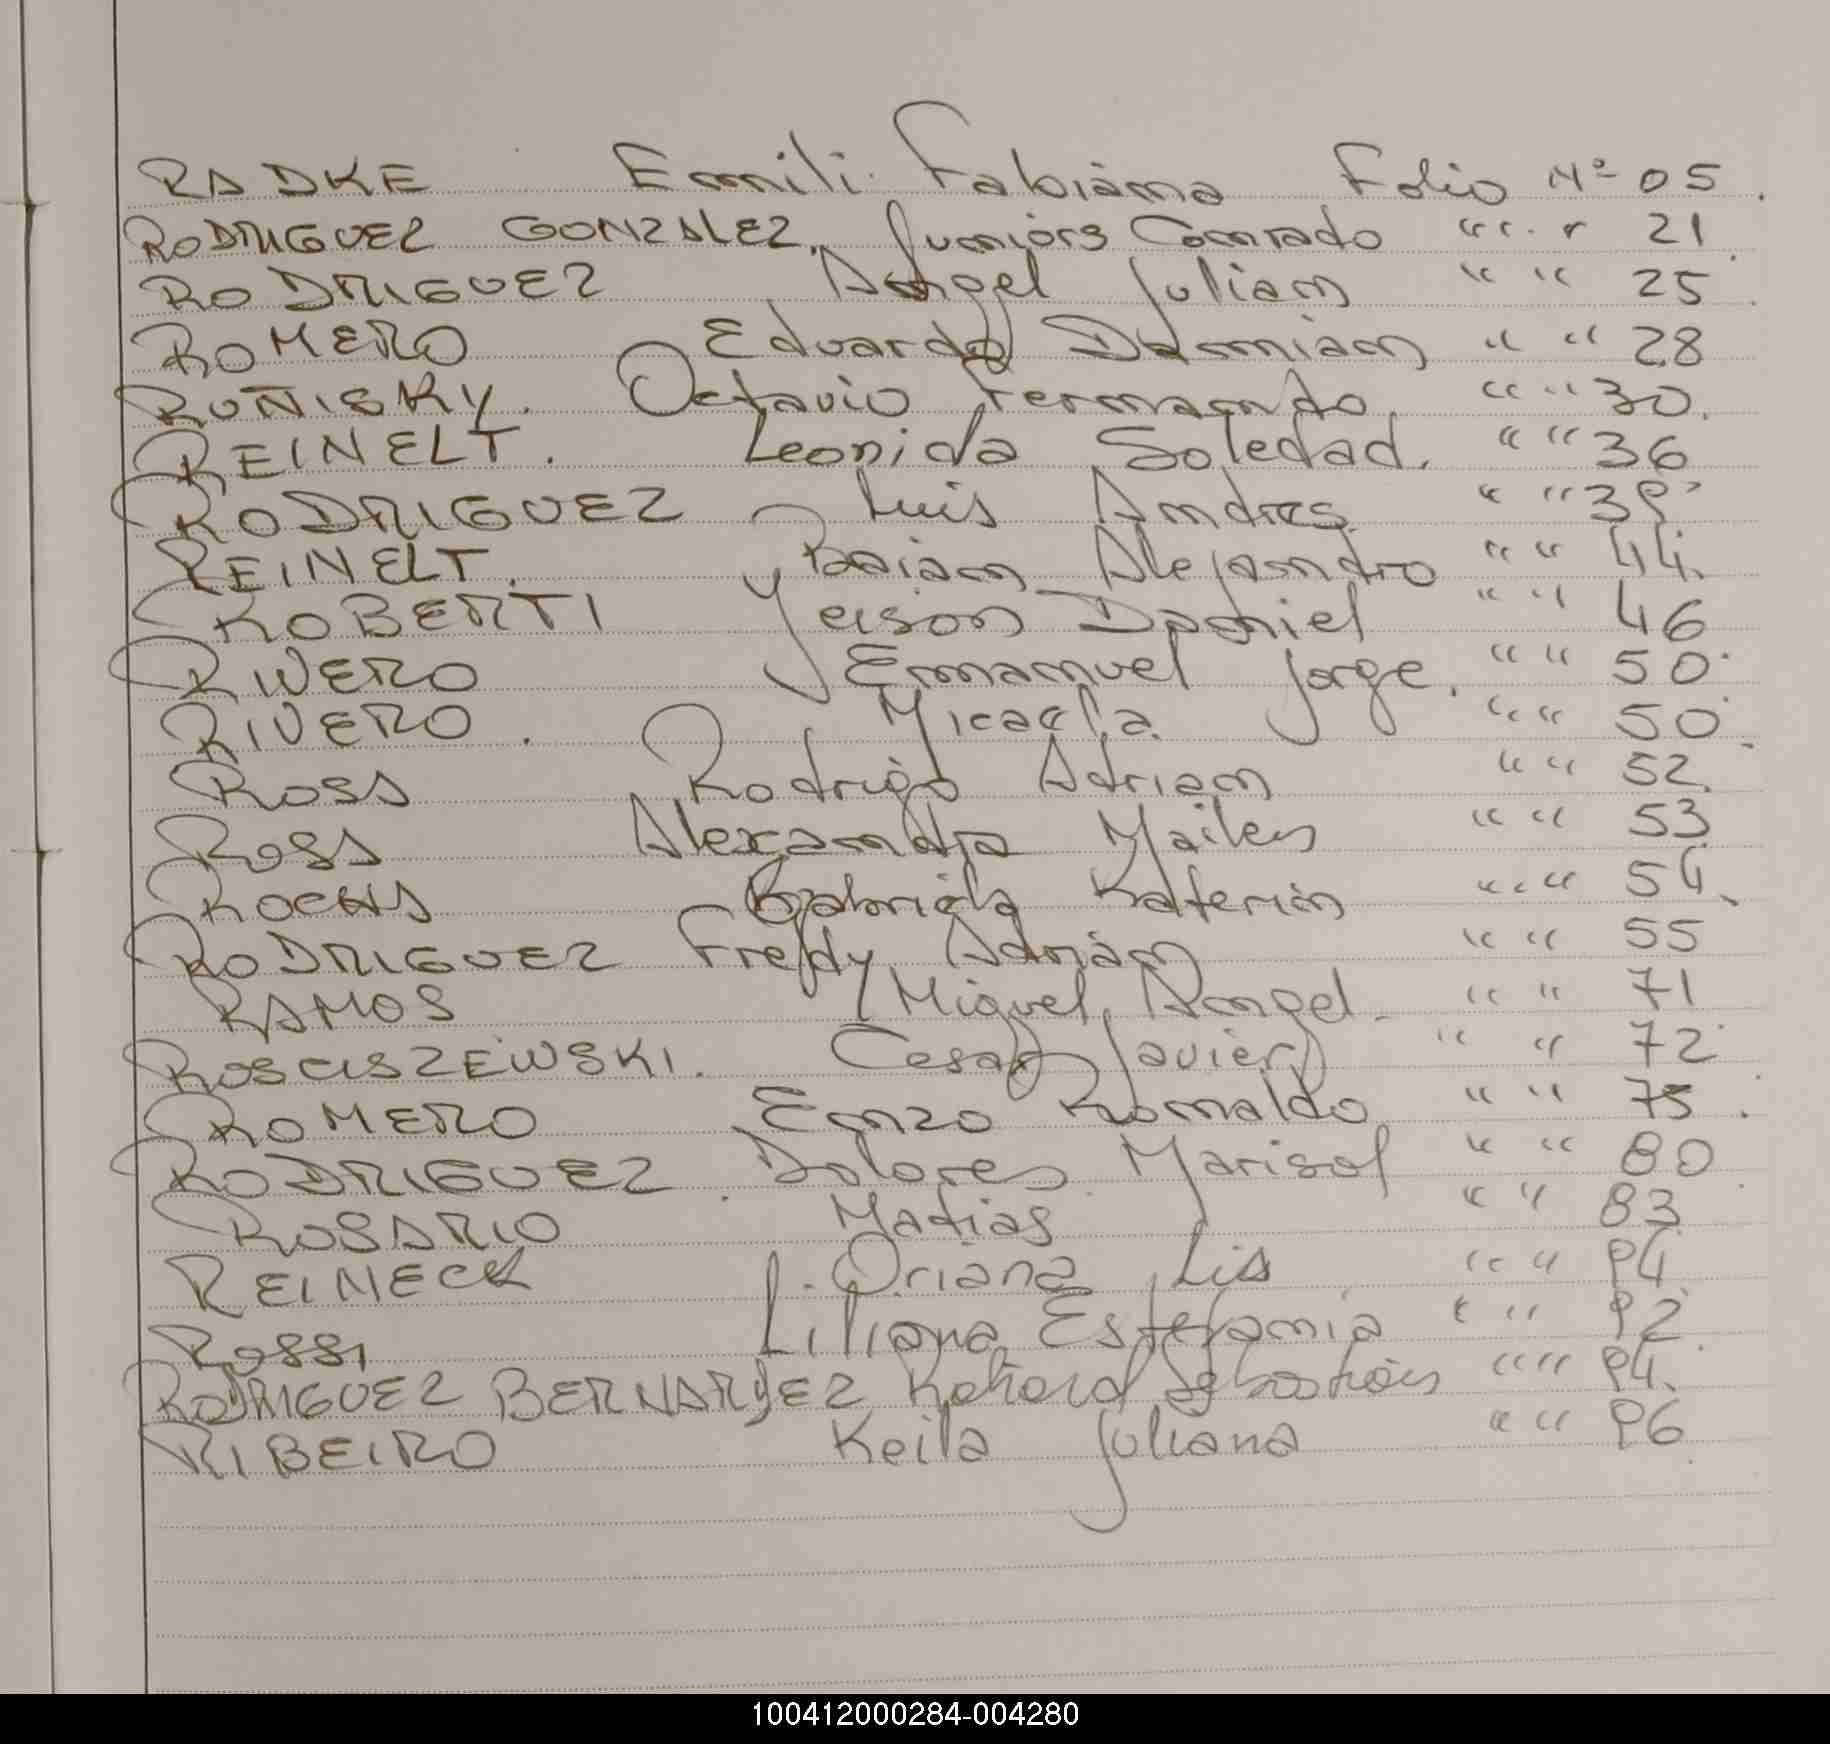 RADKE Emili Fabiana Folio Nº 05.
RODRIGUEZ GONZALEZ, Juniors Conrado " " " 21
RODRIGUEZ Angel Julian " " 25
ROMERO Eduardo Damian " " 28
RUÑISKY. Octavio Fernando " " 30.
REINELT. Leonida Soledad. " " 36
RODRIGUEZ Luis Andres " " 39
REINELT. Braian Alejandro " " 44.
ROBERTI Yeison Daniel " " 46
RIVERO Emmanuel Jorge. " " 50
RIVERO. Micaela " " 50
ROSA Rodrigo Adrian " " 52.
ROSA Alexandra Mailen " " 53
ROCHA Gabriela Katerin " " 54
RODRIGUEZ Fredy Adrián " " 55
RAMOS Miguel Angel. " " 71
ROSCISZEWSKI. Cesar Javier " " 72
ROMERO Enzo Romaldo " " 75.
RODRIGUEZ. Dolores Marisol " " 80
ROSARIO Matias " " 83
REINECK Oriana Lis " " 94
ROSSI Liliana Estefania " " 92
RODRIGUEZ BERNARDEZ Sebastián " " 94.
RIBEIRO Keila Juliana " " 96
100412000284-004280